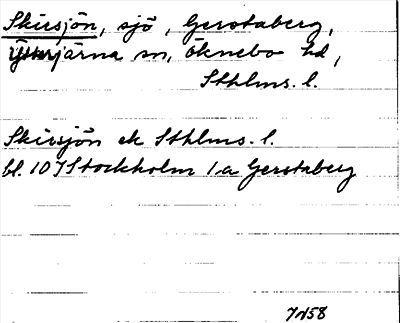 Skirsjön, sjö, Gerstaberg,
Ytterjärna sn, Öknebo hd,
Sthlms. l.
Skirsjön ek Sthlms. l.
bl. 10 I Stockholm 1a Gerstaberg